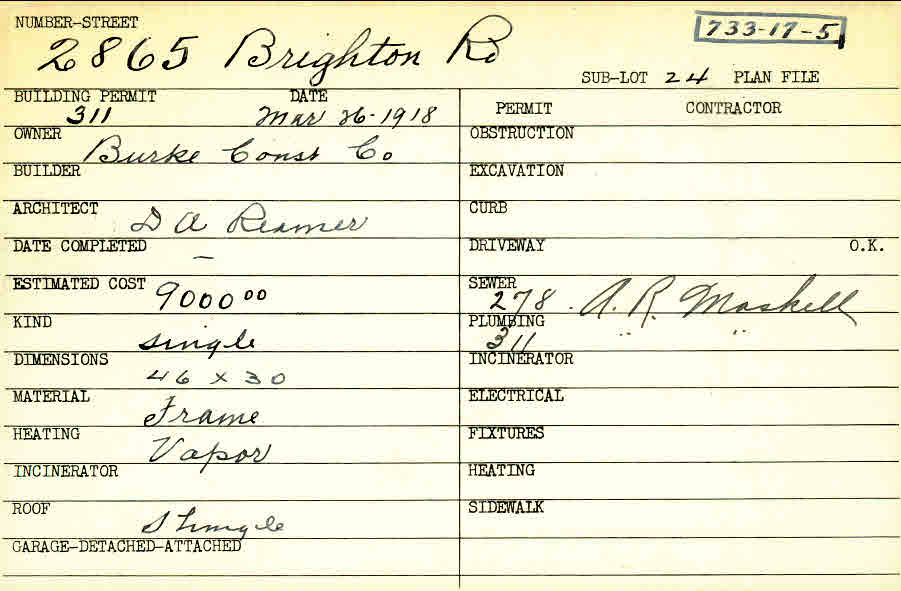 NUMBER-STREET
2865 Brighton Rd
733-17-5
SUB-LOT 24 PLAN FILE
BUILDING PERMIT DATE
311 Mar 26-1918
PERMIT CONTRACTOR
OWNER Burke Const Co
OBSTRUCTION
BUILDER
EXCAVATION
ARCHITECT D A Reamer
CURB
DATE COMPLETED —
DRIVEWAY O.K.
ESTIMATED COST 9000 00
SEWER 278 A. R. Maskell
KIND single
PLUMBING 311 " "
DIMENSIONS 46 x 30
INCINERATOR
MATERIAL Frame
ELECTRICAL
HEATING Vapor
FIXTURES
INCINERATOR
HEATING
ROOF Shingle
SIDEWALK
GARAGE-DETACHED-ATTACHED